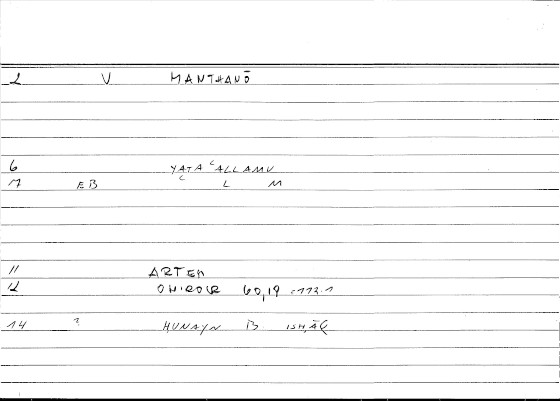 2 V MANTHANŌ
6 YATAʿALLAMU
7 EB ʿ L M
11 ARTEM
12 ONIROCR 60,19
14 ? HUNAYN B ISḤĀQ